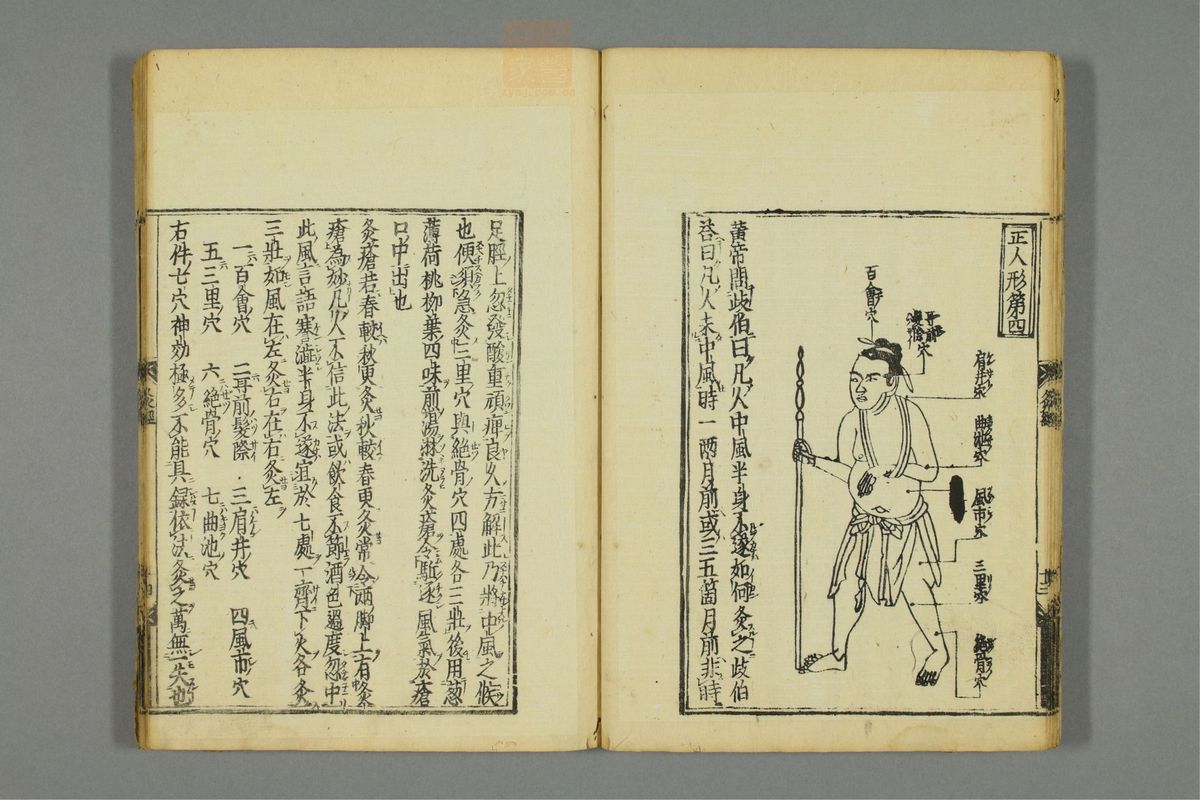 正人形第四
百會穴
耳前
髮際穴
肩井穴
曲池穴
風市穴
三里穴
絶骨穴
黄帝問歧伯曰凡人中風半身不遂如何灸之歧伯
荅曰凡人未中風時一兩月前或三五箇月前非時
足脛上忽發酸重頑痺良久方解此乃將中風之候
也便須急灸三里穴與絶骨穴四處各三壯後用葱
薄荷桃柳葉四味煎湯淋洗灸瘡令駈逐風氣於瘡
口中出也
灸瘡若春較秋更灸秋較春更灸常令兩脚上有灸
瘡為妙凡人不信此法或飲食不節酒色過度忽中
此風言語蹇澁半身不遂宜於七處一齊下火各灸
三壯如風在左灸右在右灸左
一百會穴 二耳前髮際 三肩井穴 四風市穴
五三里穴 六絶骨穴 七曲池穴
右件七穴神効極多不能具録依法灸之萬無一失也